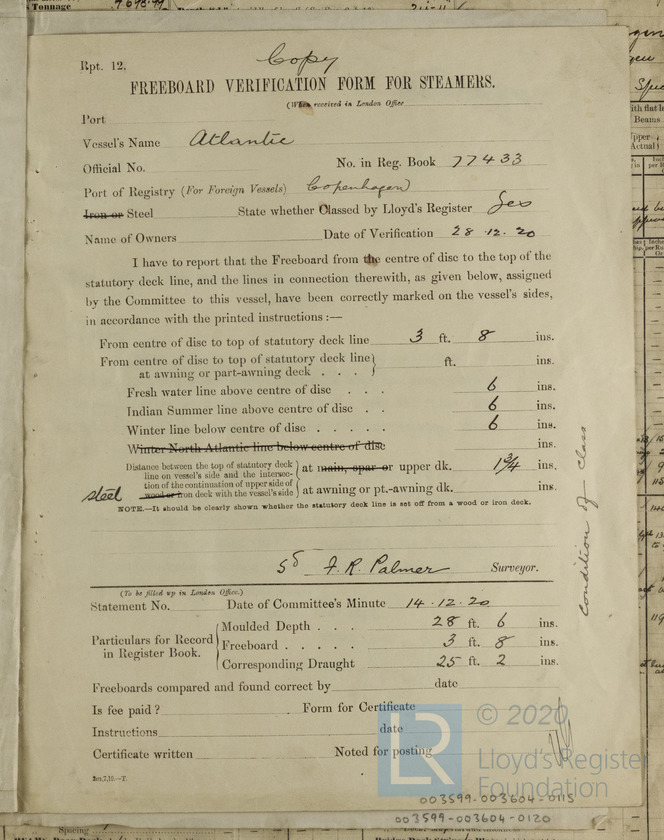 Tonnage
Copy
Rpt. 12.
FREEBOARD VERIFICATION FORM FOR STEAMERS.
(When received in London Office
Port
Vessel's Name Atlantic
Official No. No. in Reg. Book 77433
Port of Registry (For Foreign Vessels) Copenhagen
Iron or Steel State whether Classed by Lloyd's Register Yes
Name of Owners Date of Verification 28.12.20
I have to report that the Freeboard from the centre of disc to the top of the
statutory deck line, and the lines in connection therewith, as given below, assigned
by the Committee to this vessel, have been correctly marked on the vessel's sides,
in accordance with the printed instructions :—
From centre of disc to top of statutory deck line 3 ft. 8 ins.
From centre of disc to top of statutory deck line
at awning or part-awning deck . . . ft. ins.
Fresh water line above centre of disc . . . 6 ins.
Indian Summer line above centre of disc . . 6 ins.
Winter line below centre of disc . . . . . 6 ins.
Winter North Atlantic line below centre of disc ins.
Distance between the top of statutory deck
line on vessel's side and the intersec-
tion of the continuation of upper side of
steel wood or iron deck with the vessel's side
at main, spar or upper dk. 1 3/4 ins.
at awning or pt.-awning dk. ins.
NOTE.—It should be clearly shown whether the statutory deck line is set off from a wood or iron deck.
condition of class
Sd F. R. Palmer Surveyor.
(To be filled up in London Office.)
Statement No. Date of Committee's Minute 14.12.20
Particulars for Record
in Register Book.
Moulded Depth . . . 28 ft. 6 ins.
Freeboard . . . . . 3 ft. 8 ins.
Corresponding Draught 25 ft. 2 ins.
Freeboards compared and found correct by date
Is fee paid ? Form for Certificate
Instructions date
Certificate written Noted for posting
LR
© 2020
Lloyd's Register
Foundation
003599-003604-0115
003599-003604-0120
Spacing